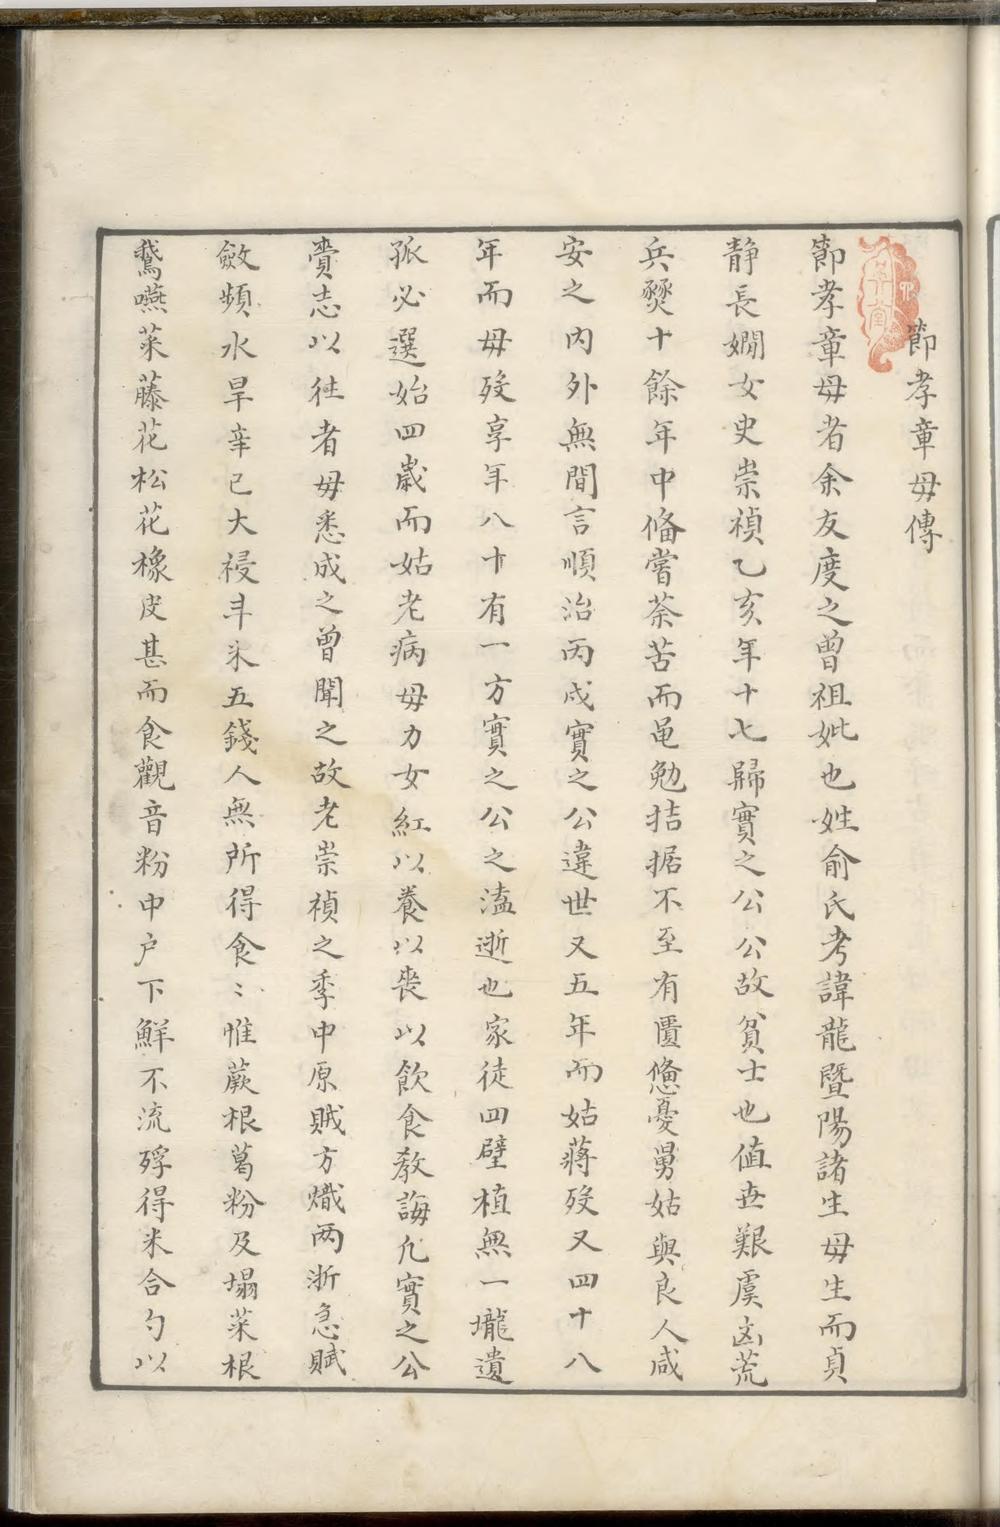 節孝章母傳
節孝章母者余友度之曾祖妣也姓俞氏考諱龍暨陽諸生母生而貞
静長嫺女史崇禎乙亥年十七歸實之公公故貧士也值世艱虞凶荒
兵燹十餘年中俻嘗荼苦而黽勉拮据不至有匱憊憂舅姑與良人咸
安之内外無間言順治丙戌實之公違世又五年而姑蔣歿又四十八
年而母歿享年八十有一方實之公之溘逝也家徒四壁植無一壠遺
孤必選始四歲而姑老病母力女紅以養以喪以飲食教誨凢實之公
賫志以徃者毋悉成之曾聞之故老崇禎之季中原賊方熾两浙急賦
斂頻水旱辛巳大祲斗米五錢人無所得食〻惟蕨根葛粉及塌菜根
鵞嚥菜藤花松花橡皮甚而食觀音粉中户下鮮不流殍得米合勺以